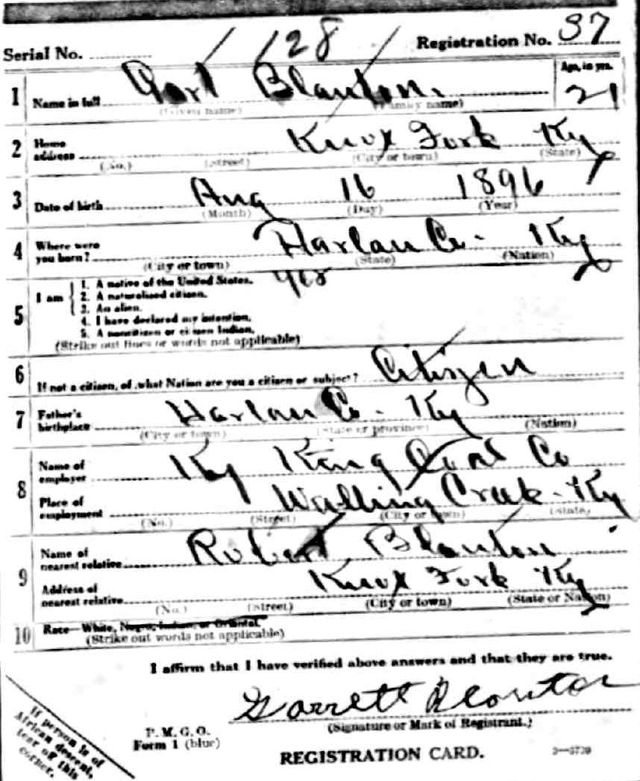 Serial No. 128 Registration No. 37
1 Name in full Gart Blanton. Age, in yrs. 21
(Given name) (Family name)
2 Home address Knox Fork Ky
(No.) (Street) (City or town) (State)
3 Date of birth Aug 16 1896
(Month) (Day) (Year)
4 Where were you born? Harlan Co. - Ky
(City or town) (State) (Nation)
5 I am
1. A native of the United States. yes
2. A naturalized citizen.
3. An alien.
4. I have declared my intention.
5. A noncitizen or citizen Indian.
(Strike out lines or words not applicable)
6 If not a citizen, of what Nation are you a citizen or subject? Citizen
7 Father's birthplace Harlan Co - Ky
(City or town) (State or province) (Nation)
8 Name of employer Ky King Co
Place of employment Walling Creek - Ky
(No.) (Street) (City or town) (State)
9 Name of nearest relative Robert Blanton
Address of nearest relative Knox Fork Ky
(No.) (Street) (City or town) (State or Nation)
10 Race—White, Negro, Indian, or Oriental.
(Strike out words not applicable)
I affirm that I have verified above answers and that they are true.
Garrett Blanton
(Signature or Mark of Registrant.)
P. M. G. O.
Form 1 (blue)
REGISTRATION CARD.
If person is of
African descent,
tear off this
corner.